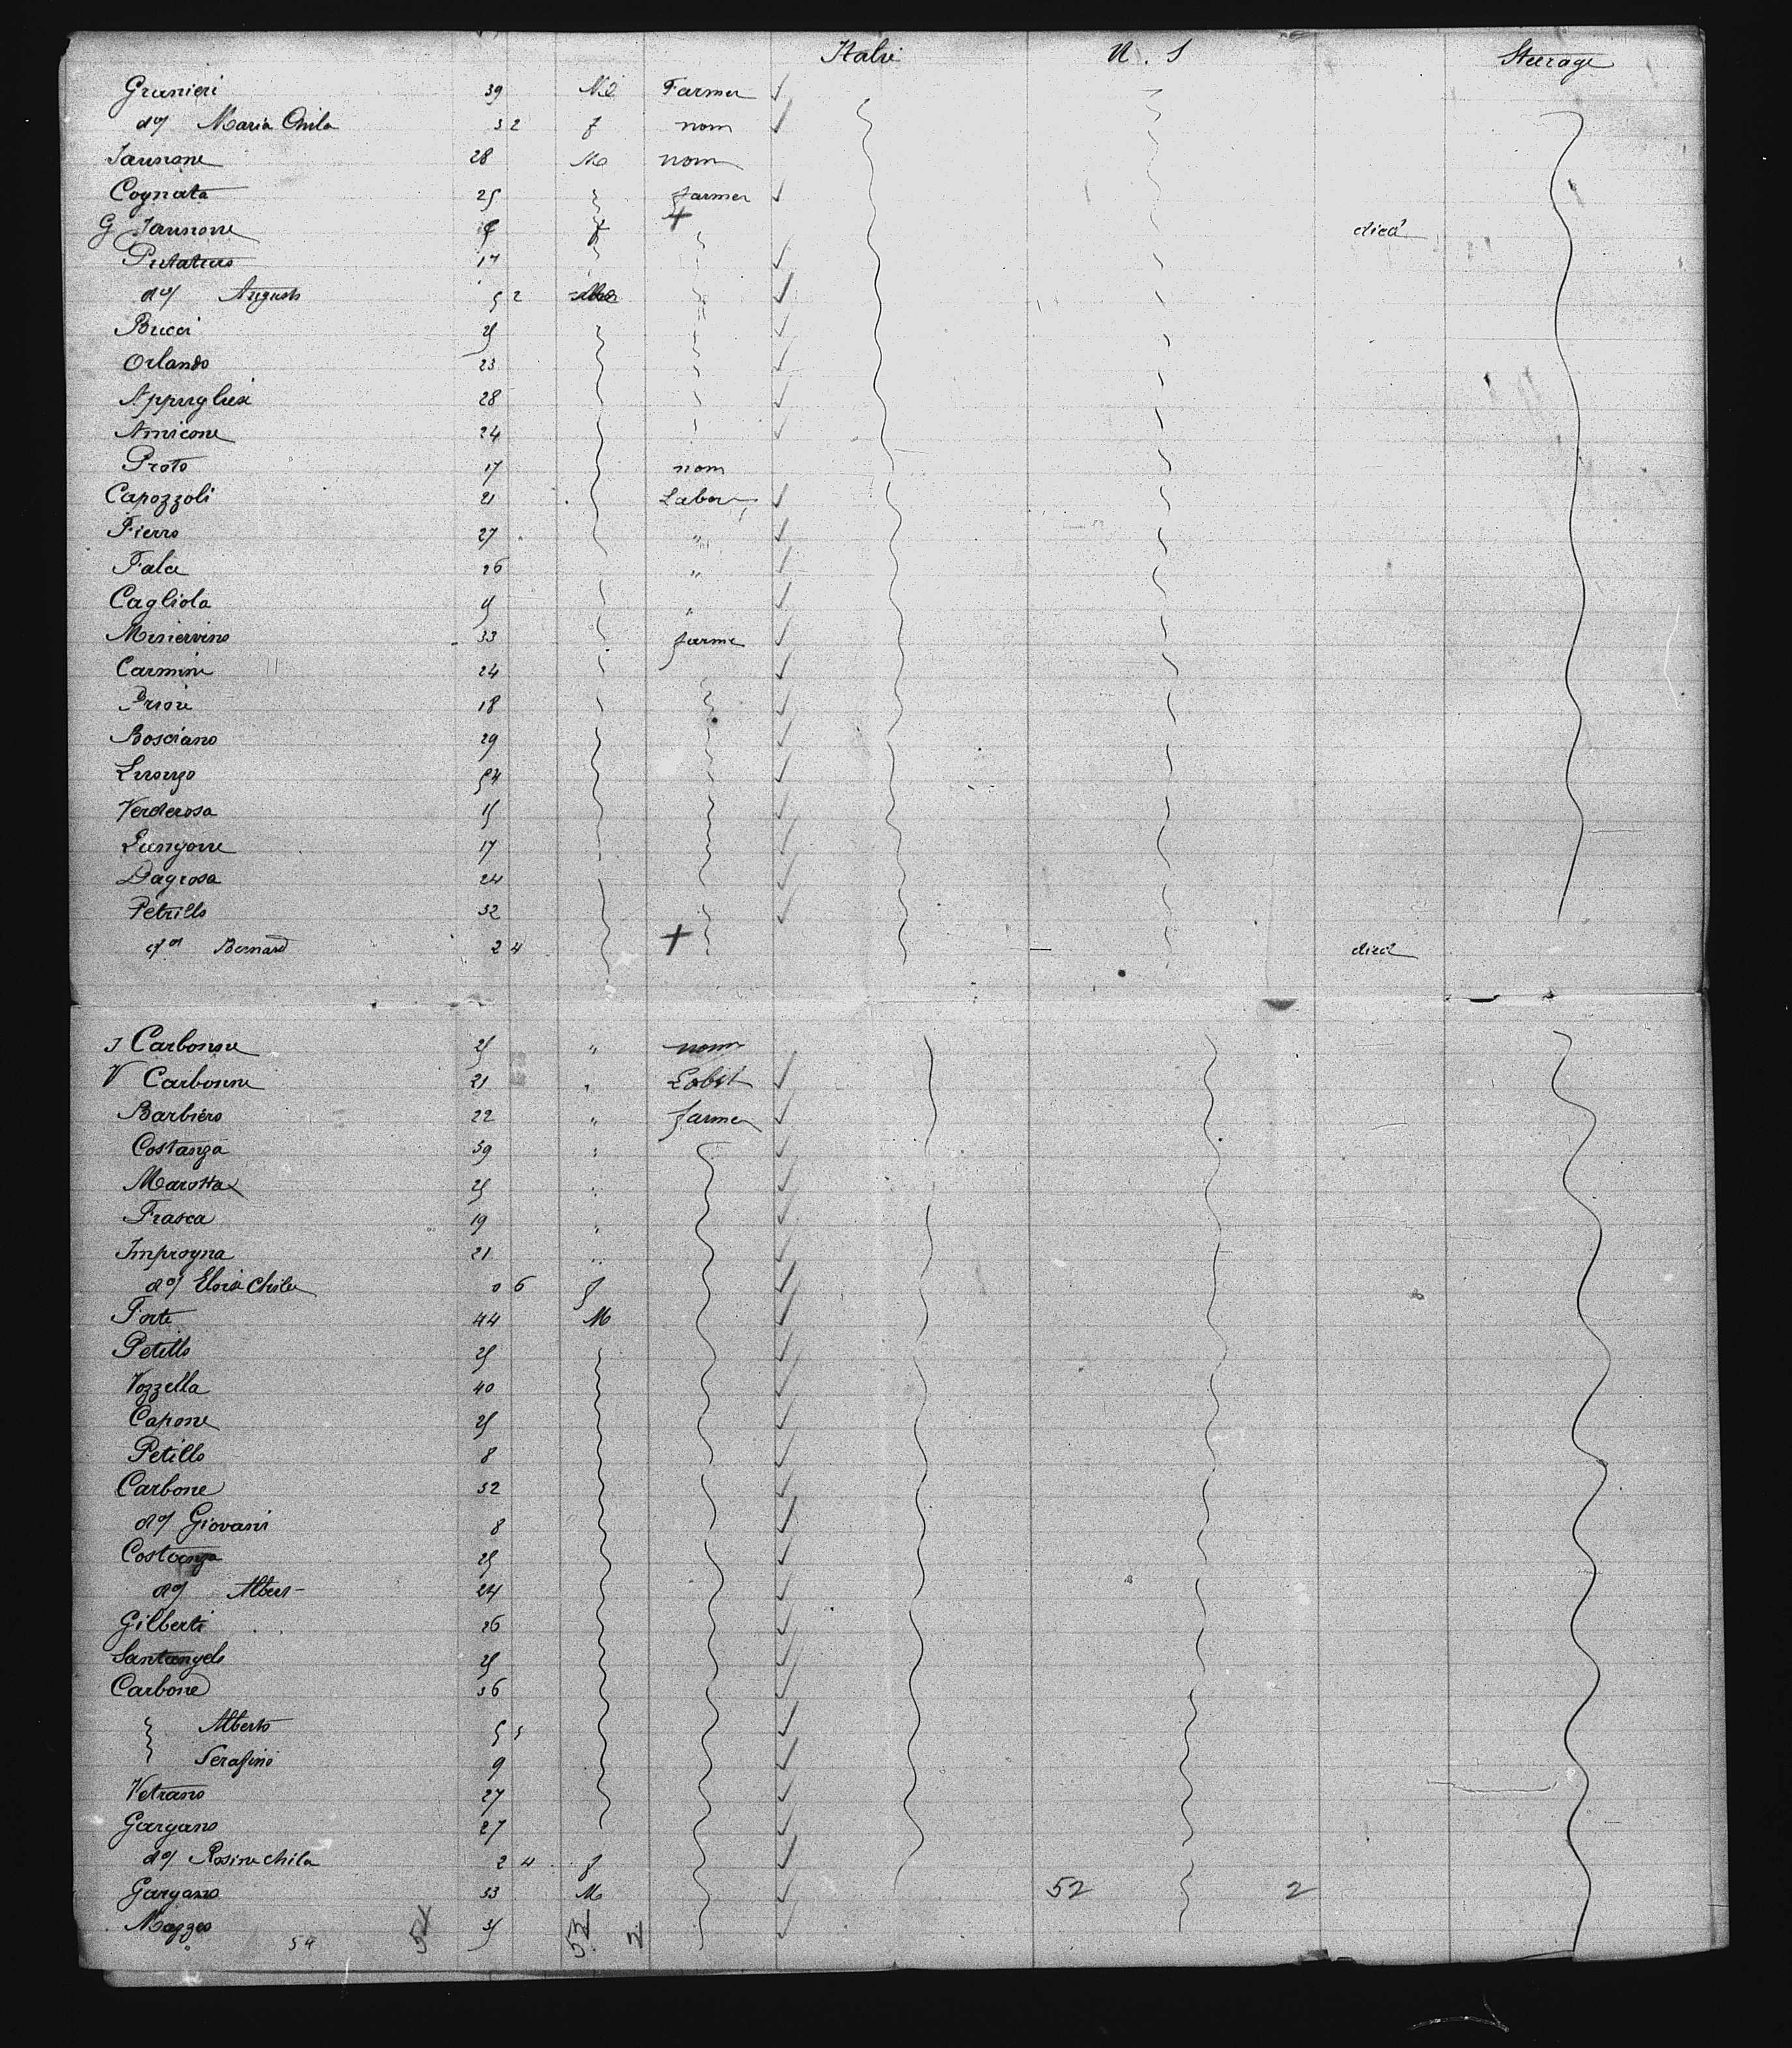 Italie U. S Steerage
Grunieri 39 Me Farmer
do/ Maria Chila 3 2 f nom
Iannone 28 M nom
Cognata 25 farmer
G Iannone f died
Putaturo 17
do/ August 5 2
Bucci 25
Orlando 23
Appugliesi 28
Amicone 24
Proto 17 nom
Capozzoli 21 Labor
Fierro 27 "
Falce 26 "
Cagliola 45 "
Miniervino 33 farme
Carmini 24
Priori 18
Bosciano 29
54
Verderosa 45
17
Dagrosa 24
Petrillo 32
do Bernard 2 4 + died
J Carbonne 25 " nom
V Carbonne 21 "
Barbiero 22 " farmer
Costanza 39 "
Marotta 25 "
Frasca 19 "
Improgna 21 "
do/ Chila 0 6 f
Forte 44 M
Petillo 25
Vozzella 40
Capone 25
Petillo 8
Carbone 32
do/ Giovani 8
Costanza 25
do/ Albert 24
Gilberti 26
Santangelo 25
Carbone 36
Alberto 5 5
Serafino 9
Vetrano 27
Gargano 27
do/ Rosine chila 2 4 f
Gargano 33 M 52 2
Mazzeo 35
54 54 52 2